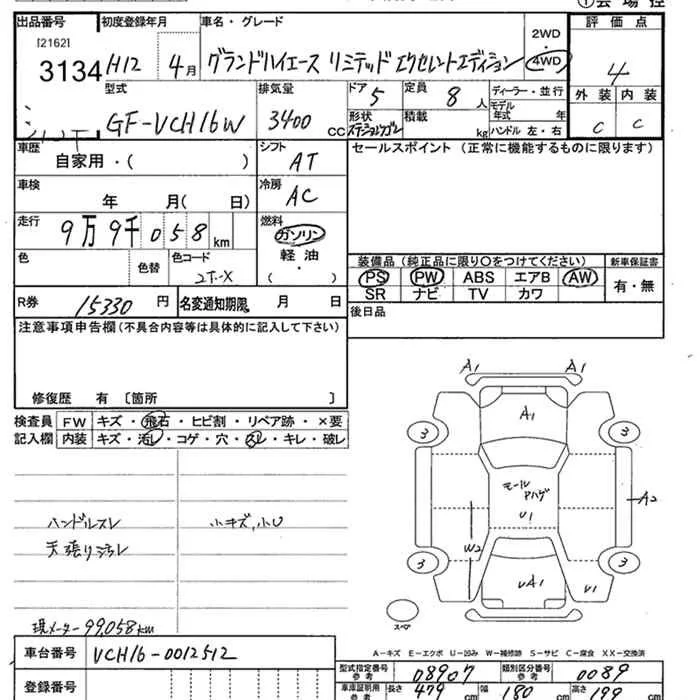 ①会場控
出品番号 初度登録年月 車名・グレード 評価点
[2162]
3134 H12 4月 グランドハイエース リミテッド エクセレントエディション
2WD
・
4WD
4
型式 排気量 ドア 定員 ディーラー・並行 外装 内装
GF-VCH16W 3400 CC 5 8人 モデル年式 年 C C
形状 ステーションワゴン 積載 kg ハンドル 左・右
車歴 シフト セールスポイント (正常に機能するものに限ります)
自家用・( ) AT
車検 冷房
年 月( 日) AC
走行 燃料
9万9千058km ガソリン
軽油
・
( )
色 色替 色コード
装備品(純正品に限り○をつけてください) 新車保証書
PS PW ABS エアB AW 有・無
SR ナビ TV カワ
R券 15330円 名変通知期限 月 日 後日品
注意事項申告欄(不具合内容等は具体的に記入して下さい)
修復歴 有 〔箇所 〕
検査員 FW キズ・飛石・ヒビ割・リペア跡・×要
記入欄 内装 キズ・汚レ・コゲ・穴・スレ・キレ・破レ
ハンドルスレ 小キズ,小U
天張り汚レ
現メーター99,058km
A1 A1
A1
3 3
モール
アハゲ
U1
A2
W2
3 3
UA1 U1
スペア
A-キズ E-エクボ U-凹み W-補修跡 S-サビ C-腐食 XX-交換済
車台番号 VCH16-0012512
型式指定番号 参考 08907 類別区分番号 参考 0089
登録番号
車庫証明用 参考 長さ 479cm 幅 180cm 高さ 199cm